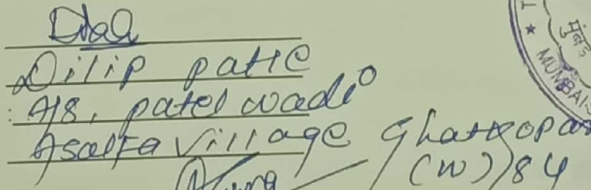 Dilip patle
A/8, patel wadi
Asalfa Village Ghatkopar
(W) 84
मुंबई
★ MUMBAI